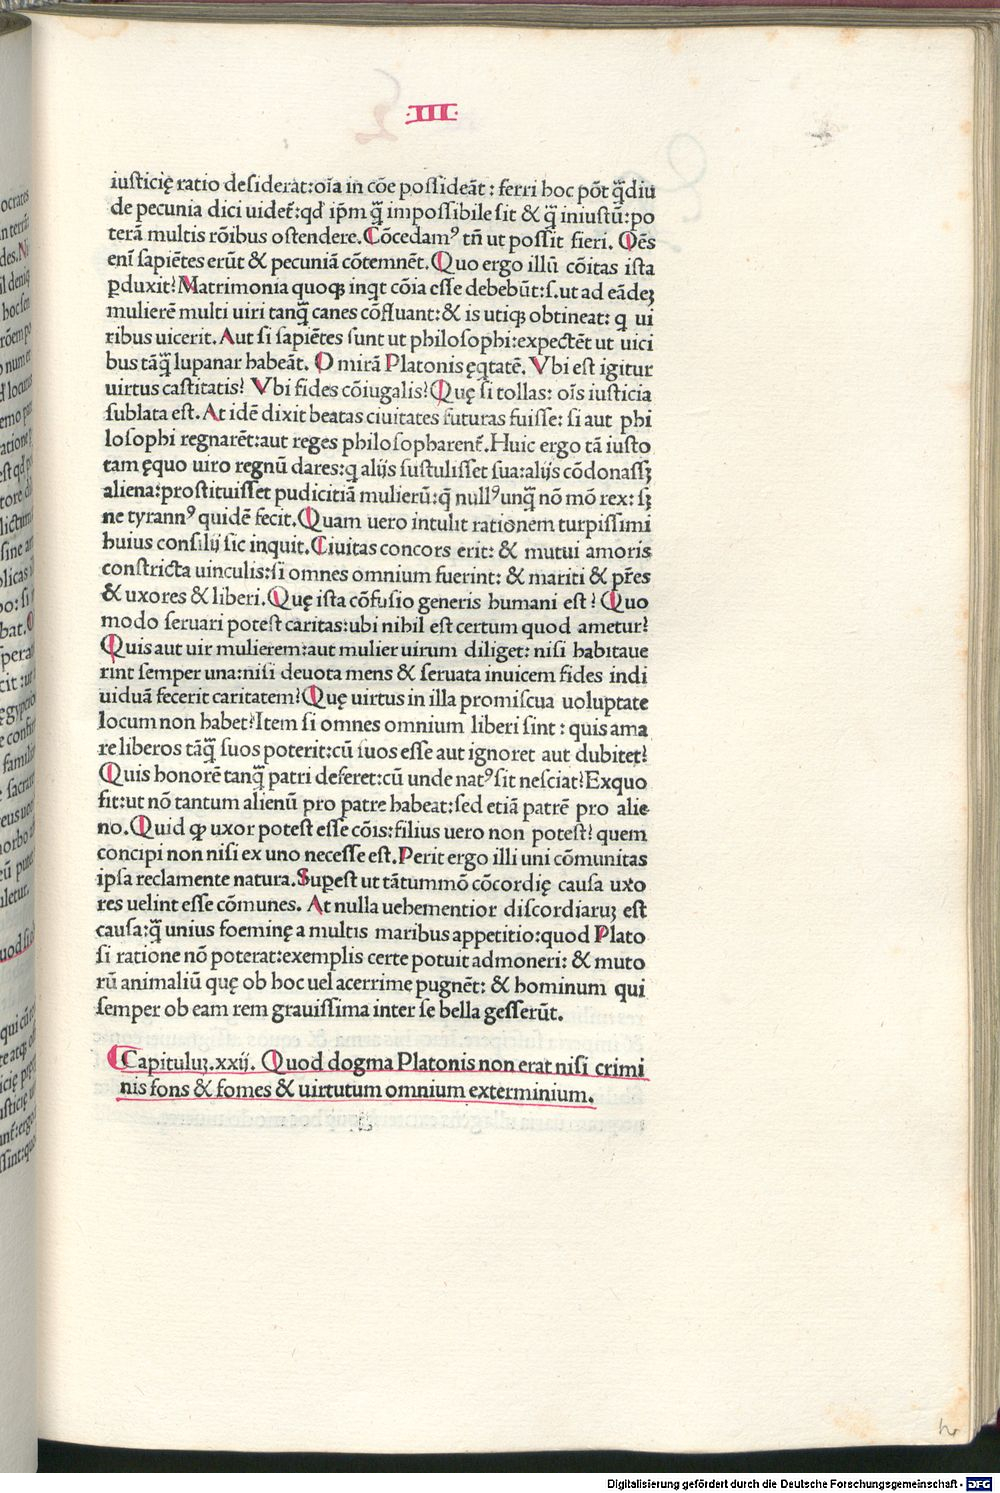 ·III·
iusticię ratio desiderat:oīa in cōe possideāt : ferri hoc pōt q̄diu
de pecunia dici uidet̄:qd ip̄m q̄ impossibile sit & q̄ iniustū:po
terā multis rōibus ostendere. Cōcedamꝰ tn̄ ut possit fieri. Om̄s
enī sapiētes erūt & pecuniā cōtemnēt. Quo ergo illū cōitas ista
ꝑduxit? Matrimonia quoqꝫ inqt cōia esse debebūt:.s.ut ad eādeꝫ
mulierē multi uiri tanq̄ canes cōfluant:& is utiqꝫ obtineat: q ui
ribus uicerit. Aut si sapiētes sunt ut philosophi:expectēt ut uici
bus tāq̄ lupanar habeāt. O mirā Platonis ęqtatē. Vbi est igitur
uirtus castitatis? Vbi fides cōiugalis? Quę si tollas: oīs iusticia
sublata est. At idē dixit beatas ciuitates futuras fuisse: si aut phi
losophi regnarēt:aut reges philosopharent̄. Huic ergo tā iusto
tam ęquo uiro regnū dares:q alijs sustulisset sua:alijs cōdonassꝫ
aliena:prostituisset pudicitiā mulierū:q̄ nullꝰ unq̄ nō mō rex: sꝫ
ne tyrannꝰ quidē fecit. Quam uero intulit rationem turpissimi
huius consilij sic inquit. Ciuitas concors erit: & mutui amoris
constricta uinculis:si omnes omnium fuerint: & mariti & pr̄es
& uxores & liberi. Quę ista cōfusio generis humani est? Quo
modo seruari potest caritas:ubi nihil est certum quod ametur?
Quis aut uir mulierem:aut mulier uirum diliget: nisi habitaue
rint semper una:nisi deuota mens & seruata inuicem fides indi
uiduā fecerit caritatem? Quę uirtus in illa promiscua uoluptate
locum non habet? Item si omnes omnium liberi sint : quis ama
re liberos tāq̄ suos poterit:cū suos esse aut ignoret aut dubitet?
Quis honorē tanq̄ patri deferet:cū unde natꝰ sit nesciat? Exquo
fit:ut nō tantum alienū pro patre habeat:sed etiā patrē pro alie
no. Quid ꝙ uxor potest esse cōis:filius uero non potest? quem
concipi non nisi ex uno necesse est. Perit ergo illi uni cōmunitas
ipsa reclamente natura. Suꝑest ut tātummō cōcordię causa uxo
res uelint esse cōmunes. At nulla uehementior discordiaruꝫ est
causa:q̄ unius foeminę a multis maribus appetitio:quod Plato
si ratione nō poterat:exemplis certe potuit admoneri: & muto
rū animaliū quę ob hoc uel acerrime pugnēt: & hominum qui
semper ob eam rem grauissima inter se bella gesserūt.
Capituluꝫ.xxij. Quod dogma Platonis non erat nisi crimi
nis fons & fomes & uirtutum omnium exterminium.
Digitalisierung gefördert durch die Deutsche Forschungsgemeinschaft - DFG